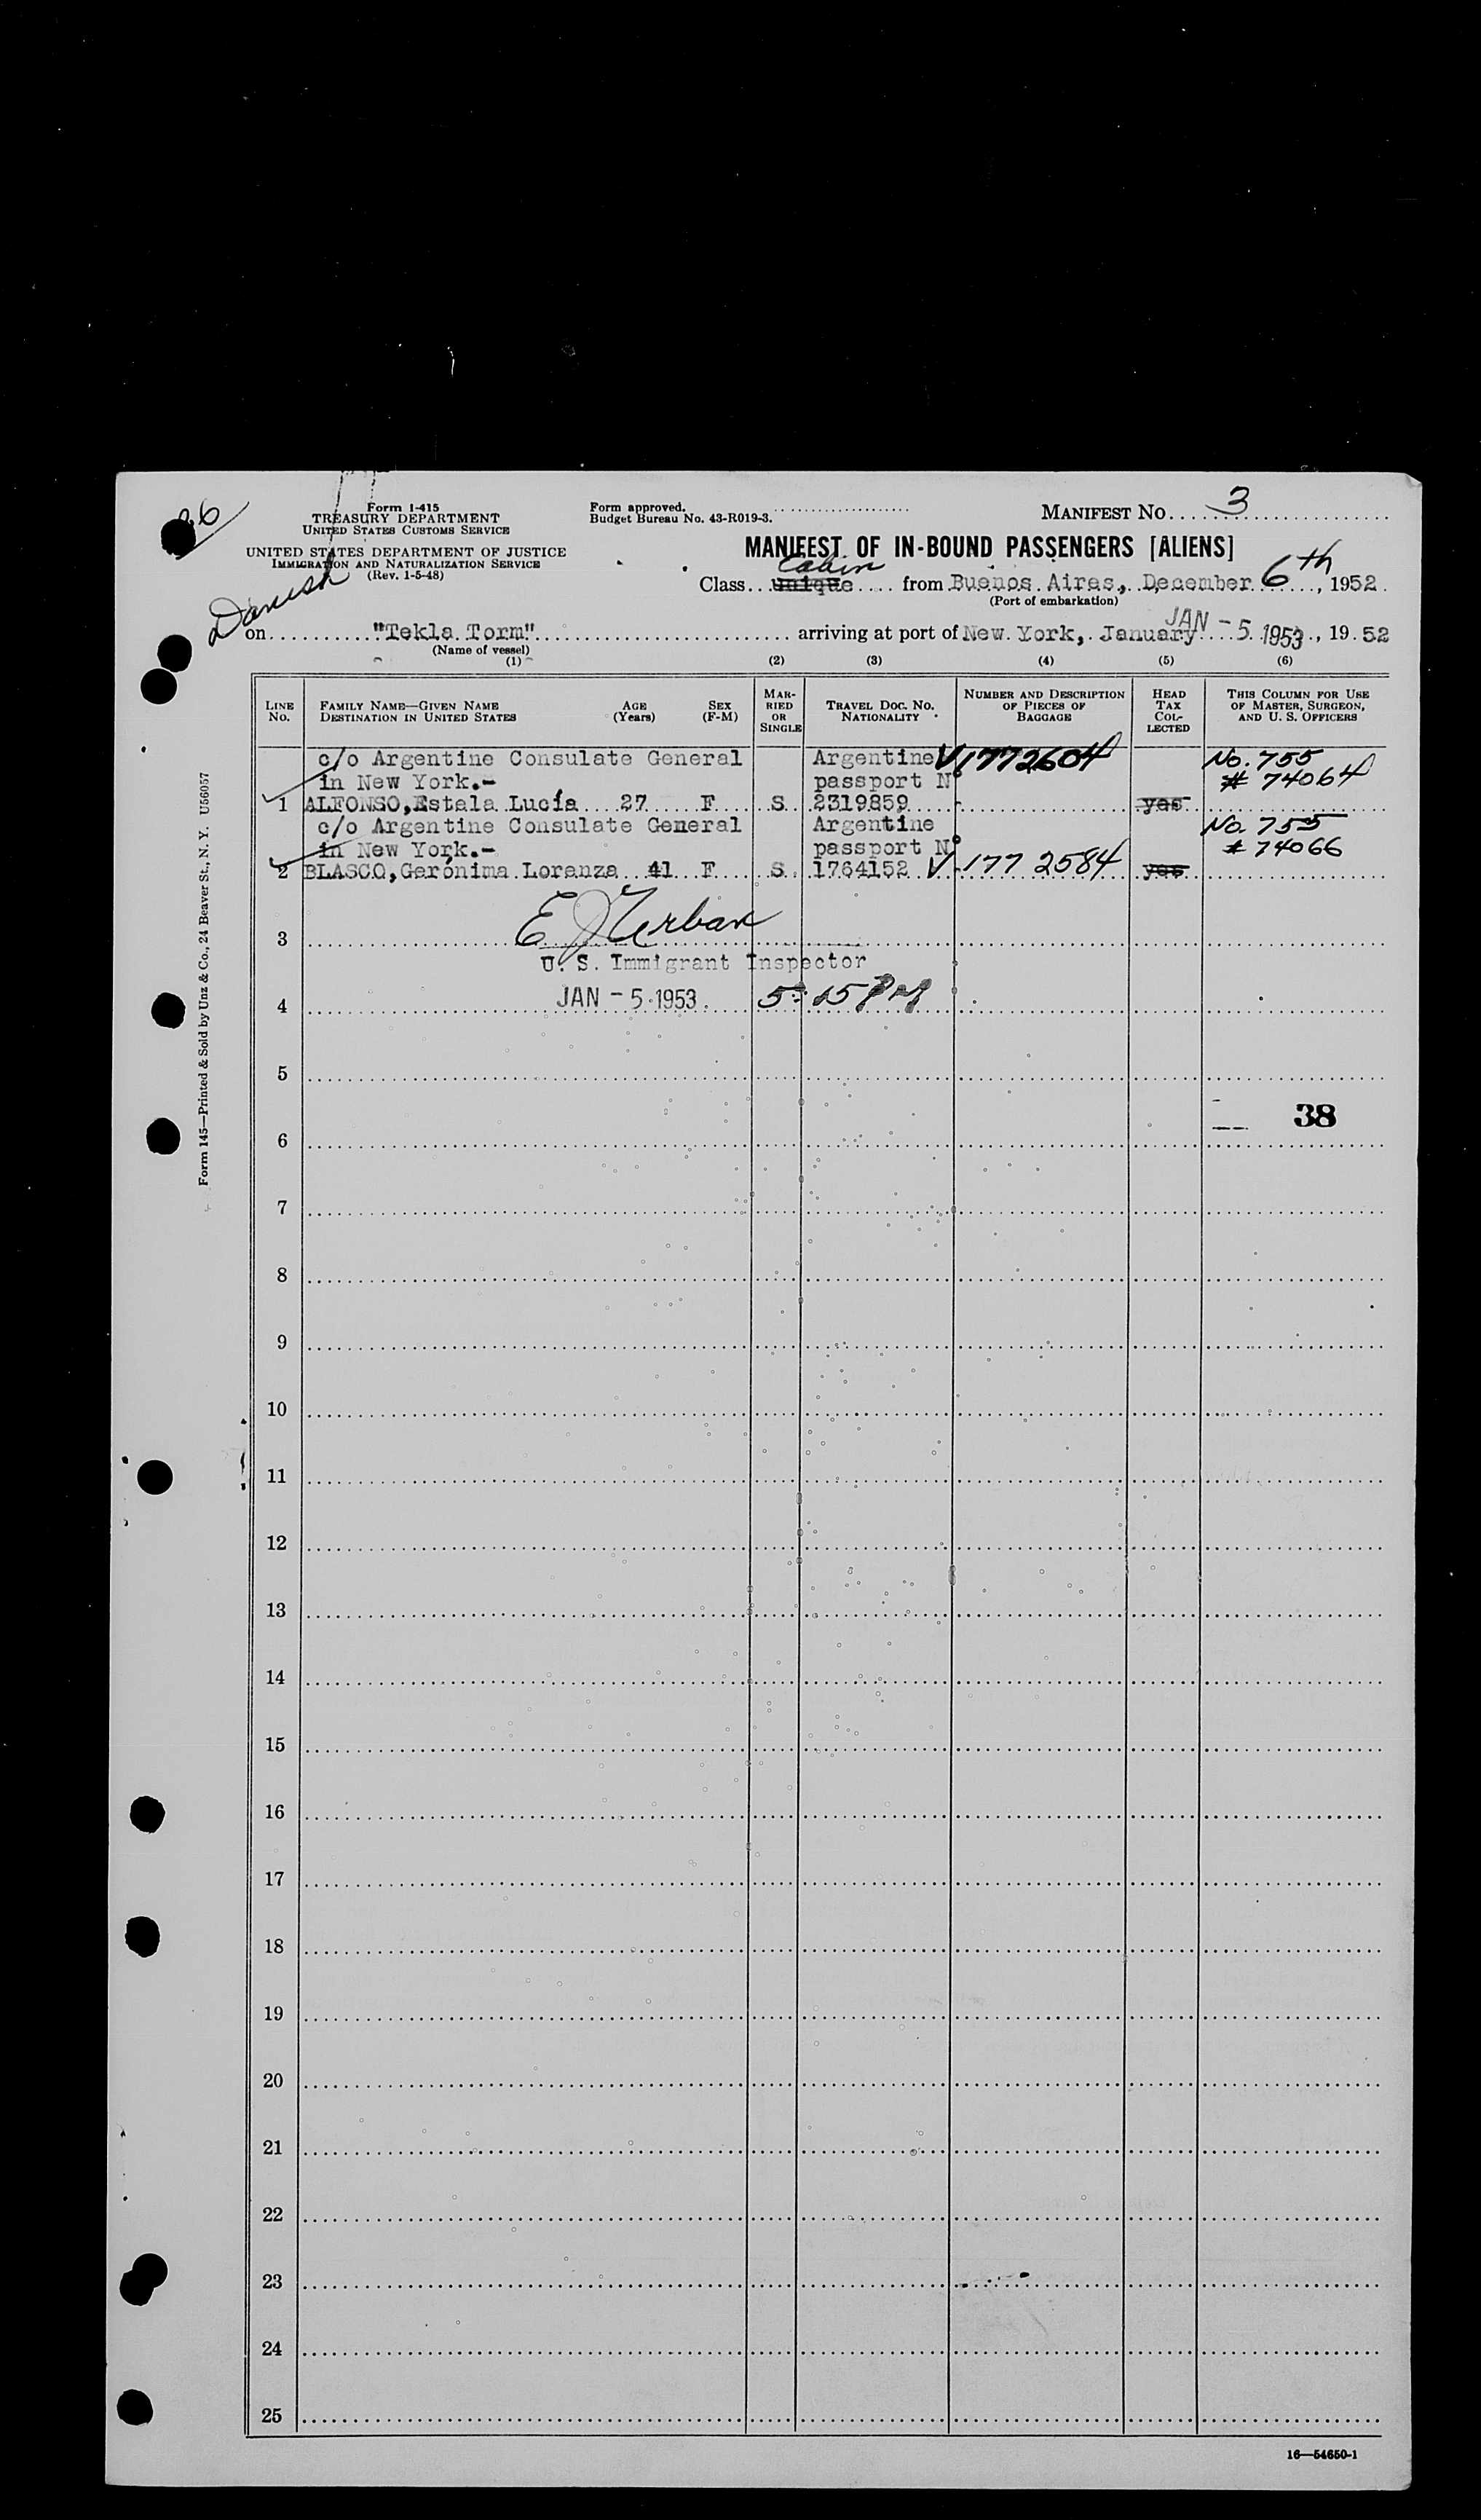 26
Form I-415
TREASURY DEPARTMENT
UNITED STATES CUSTOMS SERVICE
UNITED STATES DEPARTMENT OF JUSTICE
IMMIGRATION AND NATURALIZATION SERVICE
(Rev. 1-5-48)
Form approved.
Budget Bureau No. 43-R019-3.
MANIFEST NO. 3
MANIFEST OF IN-BOUND PASSENGERS [ALIENS]
Cabin
Class unique from Buenos Aires, December 6th, 1952
(Port of embarkation)
Danish
on "Tekla Torm" arriving at port of New York, January JAN - 5 1953, 19 52
(Name of vessel)
(1) (2) (3) (4) (5) (6)
LINE No. FAMILY NAME—GIVEN NAME DESTINATION IN UNITED STATES AGE (Years) SEX (F-M) MARRIED OR SINGLE TRAVEL DOC. NO. NATIONALITY NUMBER AND DESCRIPTION OF PIECES OF BAGGAGE HEAD TAX COLLECTED THIS COLUMN FOR USE OF MASTER, SURGEON, AND U. S. OFFICERS
c/o Argentine Consulate General Argentine V1772604 No. 755
in New York.- passport Nº # 74064
1 ALFONSO, Estala Lucía 27 F S 2319859 - yes
c/o Argentine Consulate General Argentine No. 755
in New York.- passport Nº # 74066
2 BLASCO, Gerónima Loranza 41 F S 1764152 V-177 2584 yes
3 E J Urban
U. S. Immigrant Inspector
4 JAN - 5 1953 5:15 PM
5
38
6
7
8
9
10
11
12
13
14
15
16
17
18
19
20
21
22
23
24
25
16—54650-1
Form 145—Printed & Sold by Unz & Co., 24 Beaver St., N. Y. U56057